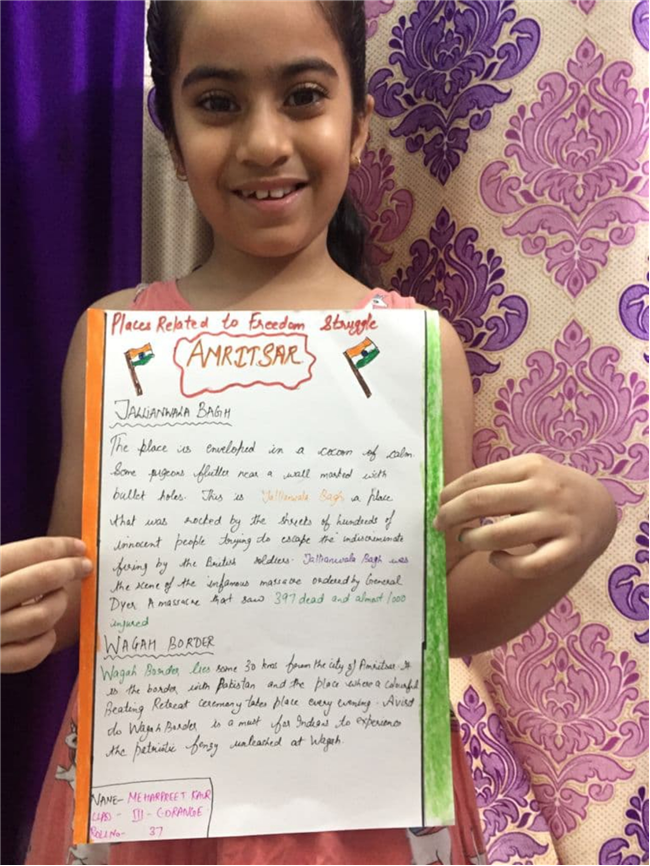 Places Related to Freedom Struggle
AMRITSAR
JALLIANWALA BAGH
The place is enveloped in a cocoon of calm.
Some pigeons flutter near a wall marked with
bullet holes. This is Jallianwala Bagh a place
that was rocked by the shrieks of hundreds of
innocent people trying to escape the indiscriminate
firing by the British soldiers. Jallianwala Bagh was
the scene of the infamous massacre ordered by General
Dyer. A massacre that saw 397 dead and almost 1000
injured
WAGAH BORDER
Wagah Border lies some 30 kms from the city of Amritsar. It
is the border with Pakistan and the place where a colourful
Beating Retreat ceremony takes place every evening. A visit
to Wagah Border is a must for Indians to experience
the patriotic unleashed at Wagah.
NAME- MEHARPREET KAUR
CLASS - III - GORANGE
ROLL NO- 37